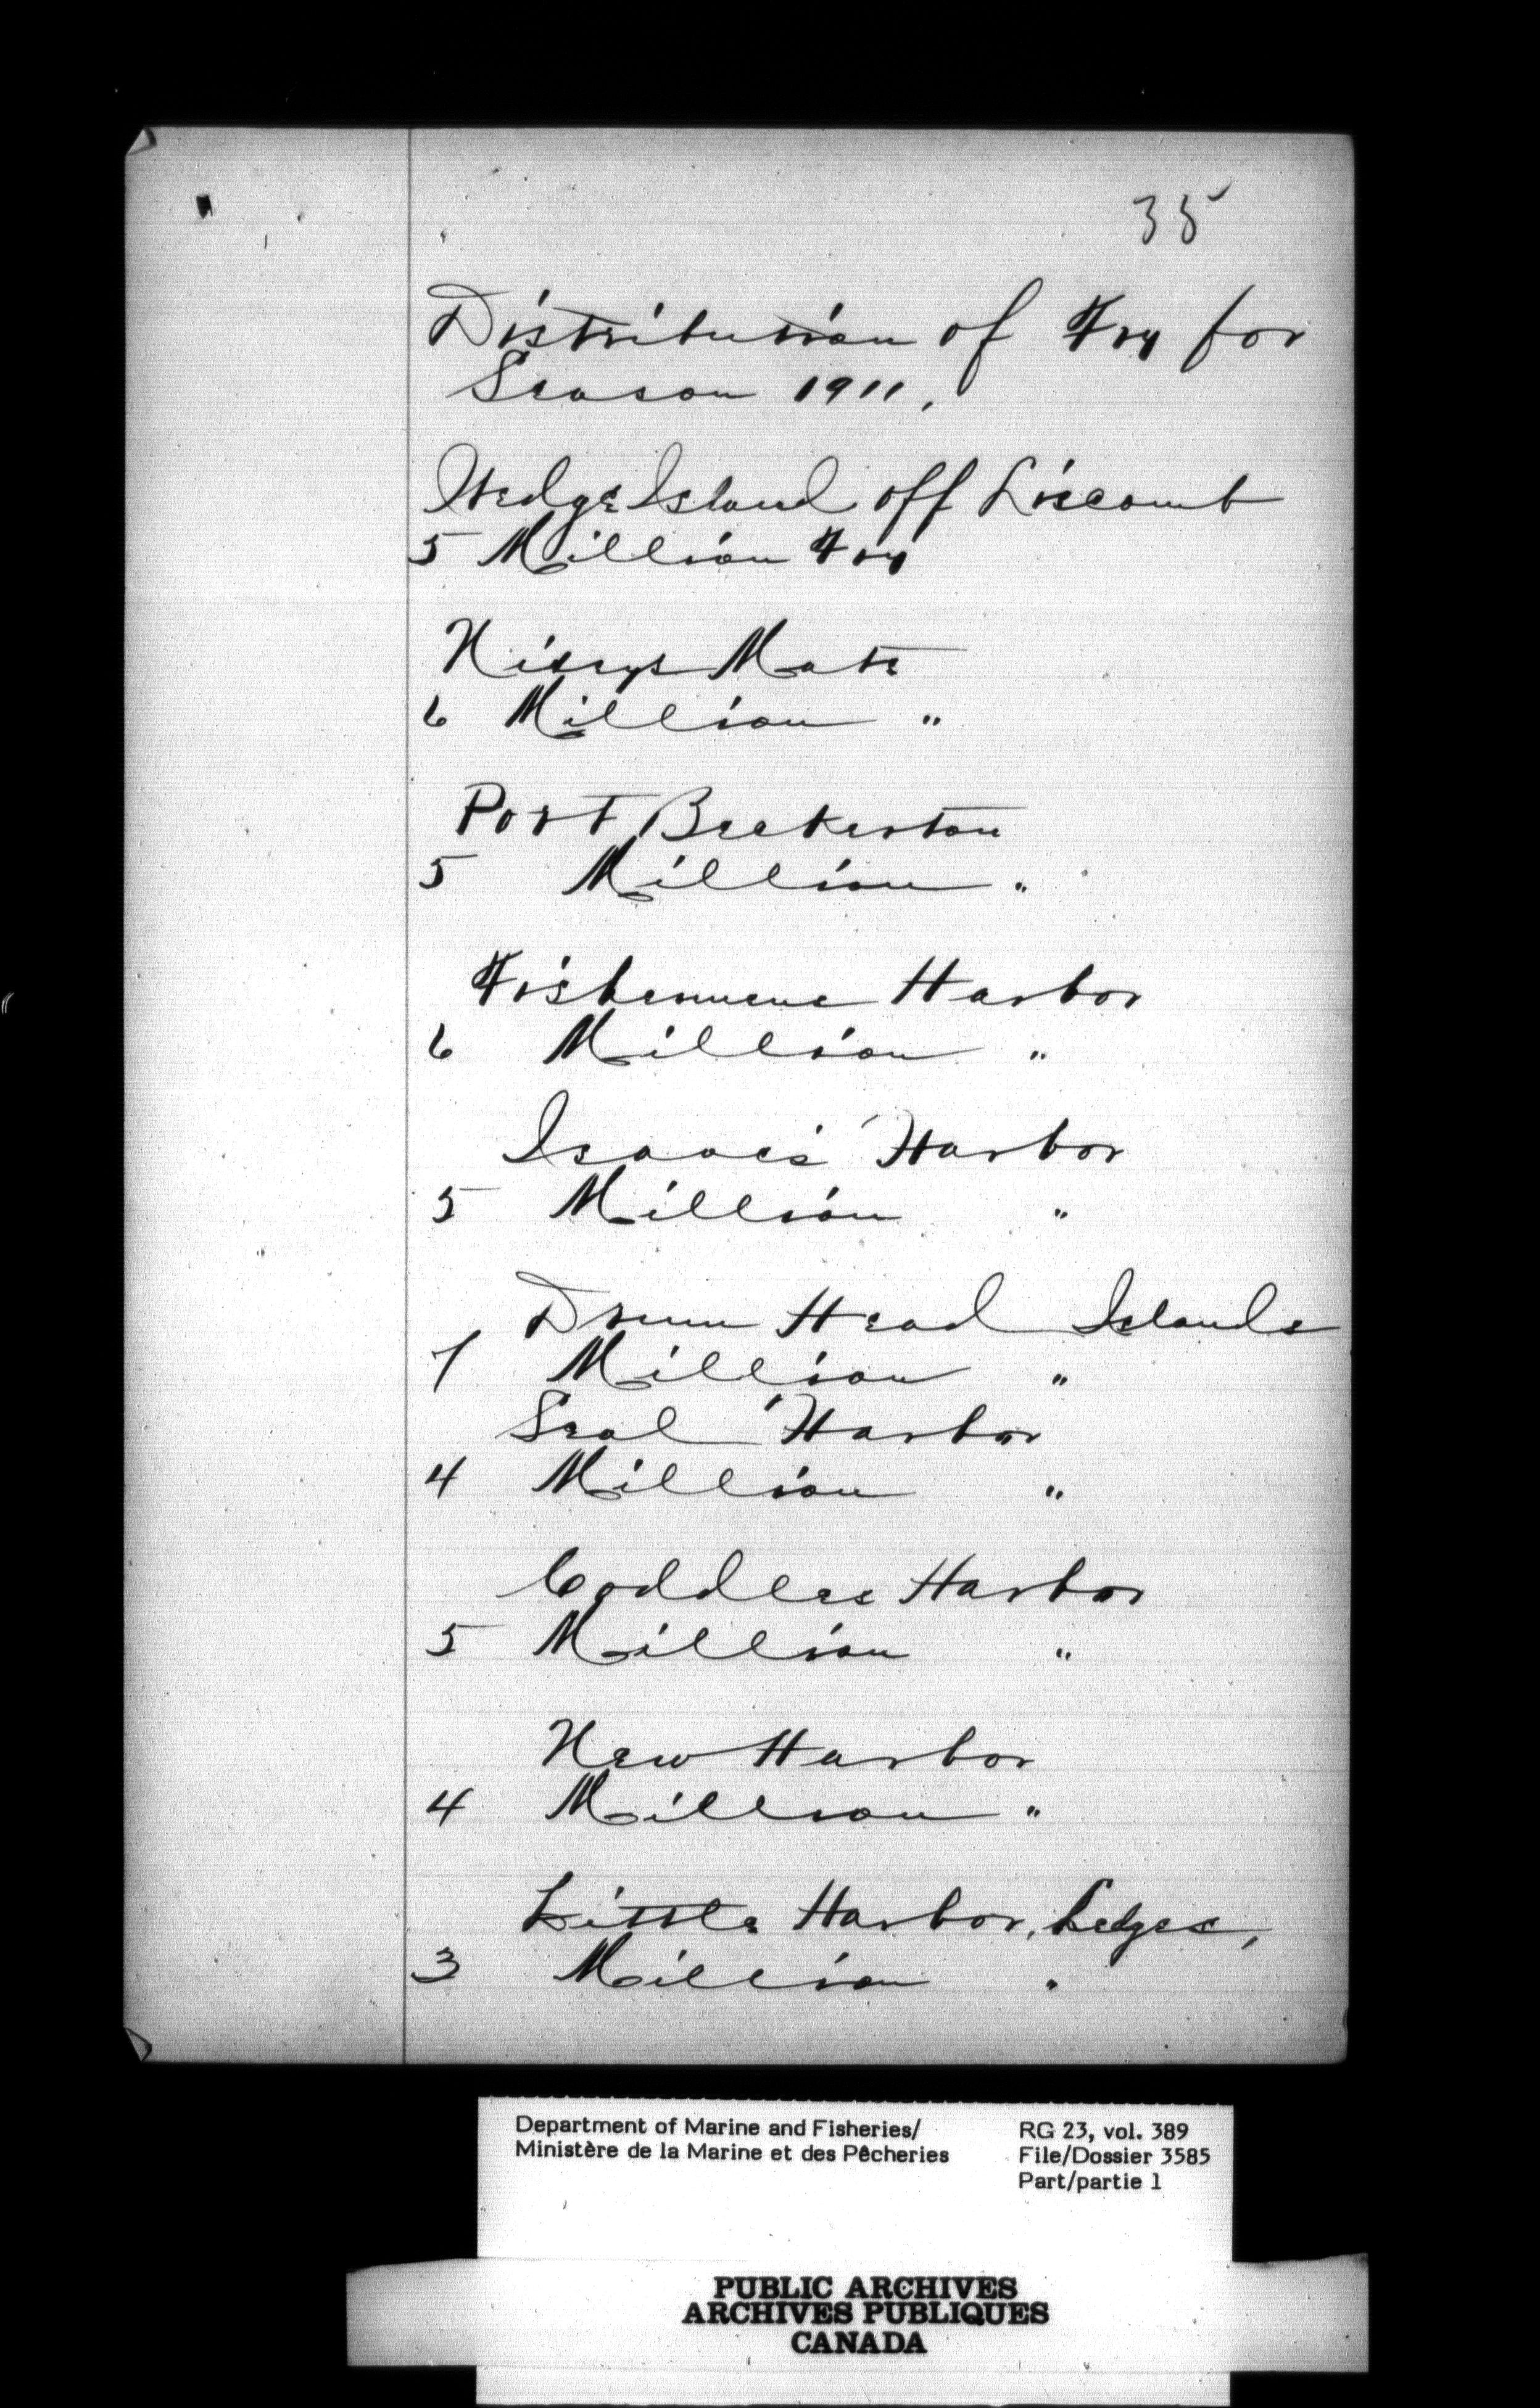 35
Distribution of Fry for
Season 1911,
Wedge Island off Liscomb
5 Million Fry
Mate
6 Million "
Port Beckerton
5 Million "
Fishermens Harbor
6 Million "
Isaacs Harbor
5 Million "
Drum Head Islands
7 Million "
Seal Harbor
4 Million "
Coddles Harbor
5 Million "
New Harbor
4 Million "
Little Harbor, Ledges,
3 Million "
Department of Marine and Fisheries/
Ministère de la Marine et des Pêcheries
RG 23, vol. 389
File/Dossier 3585
Part/partie 1
PUBLIC ARCHIVES
ARCHIVES PUBLIQUES
CANADA